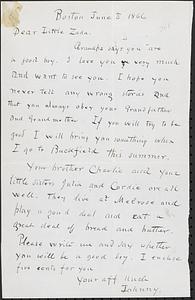 Boston June 5 1866
Dear Little Zada.
Grandpa says you are
a good boy. I love you very much
and want to see you. I hope you
never tell any wrong stories and
that you always obey your Grandfather
and Grandmother. If you will try to be
good I will bring you something when
I go to Buckfield this summer.
Your brother Charlie and your
little sisters Julia and Cordie are all
well. They live at Melrose and
play a good deal and eat a
great deal of bread and butter.
Please write me and say whether
you will be a good boy. I enclose
five cents for you
Your aff. Uncle
Johnny.